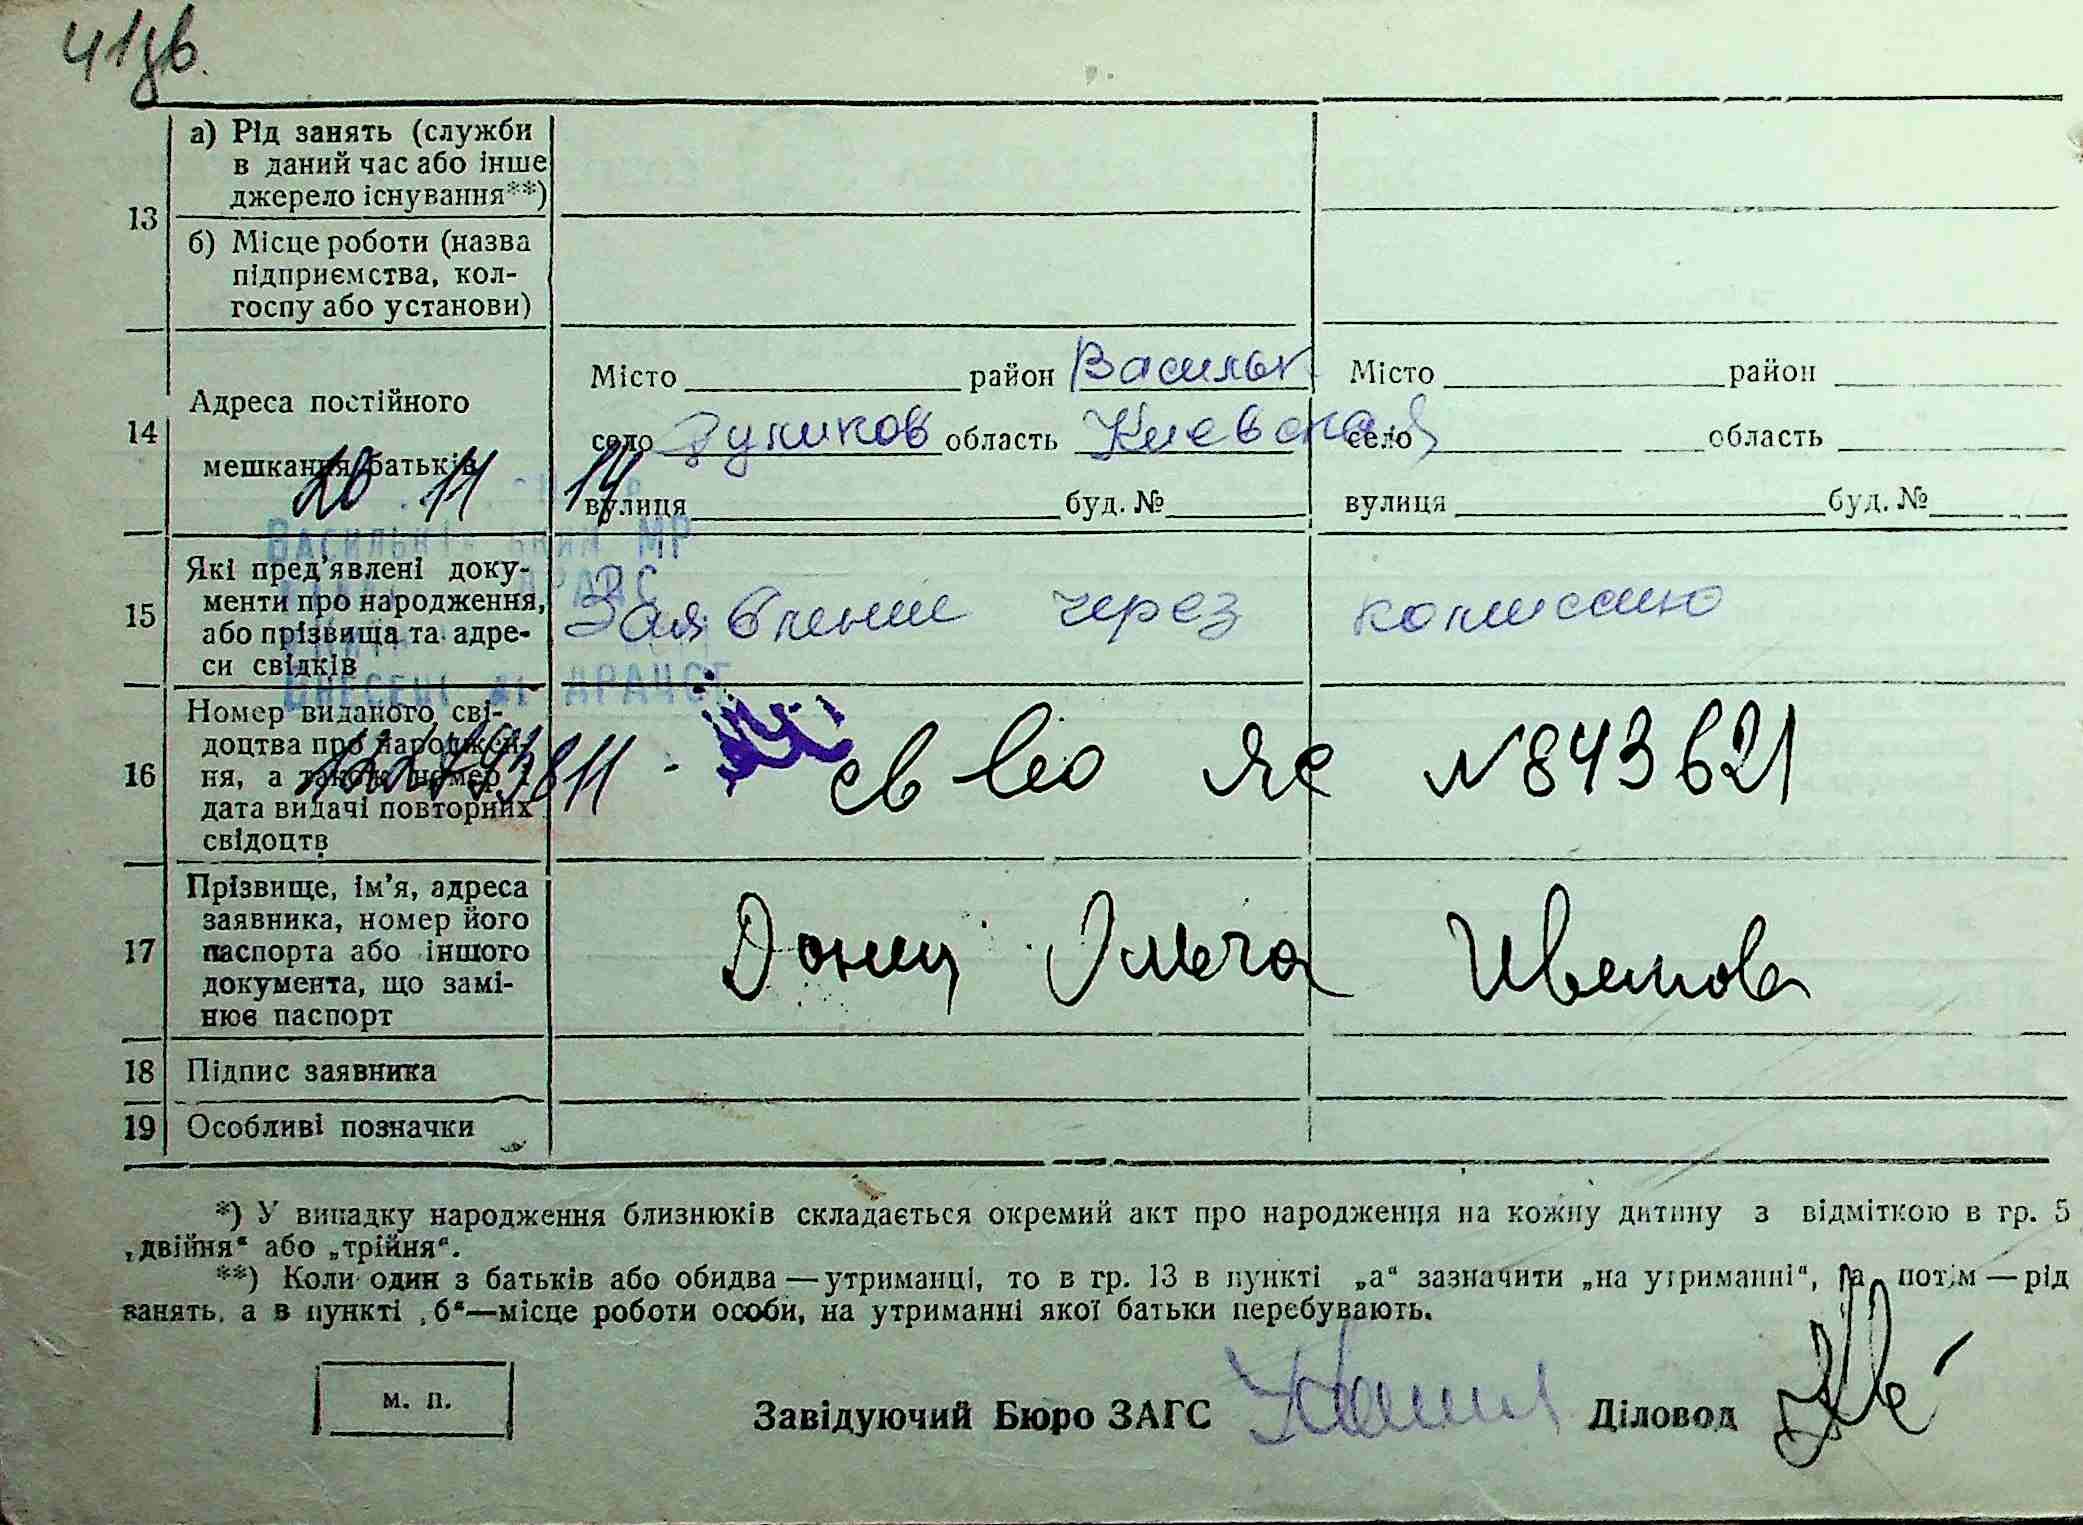 41зв.
а) Рід занять (служби
в даний час або інше
джерело існування**)
13
б) Місце роботи (назва
підприємства, кол-
госпу або установи)
14
Адреса постійного
мешкання батьків
Місто район Васильк
село область Киевская
вулиця буд. №
Місто район
село область
вулиця буд. №
20 11 14
МР
ДРАЦС
15
Які пред'явлені доку-
менти про народження,
або прізвища та адре-
си свідків
Заявление через комиссию
16
Номер виданого сві-
доцтва про народжен-
ня, а також номер і
дата видачі повторних
свідоцтв
св во ЯС №843621
17
Прізвище, ім'я, адреса
заявника, номер його
паспорта або іншого
документа, що замі-
нює паспорт
Донец Ольга Ивановна
18 Підпис заявника
19 Особливі позначки
*) У випадку народження близнюків складається окремий акт про народження на кожну дитину з відміткою в гр. 5
„двійня“ або „трійня“.
**) Коли один з батьків або обидва — утриманці, то в гр. 13 в пункті „а“ зазначити „на утриманні“, а потім — рід
занять, а в пункті „б“—місце роботи особи, на утриманні якої батьки перебувають.
м. п.
Завідуючий Бюро ЗАГС
Діловод